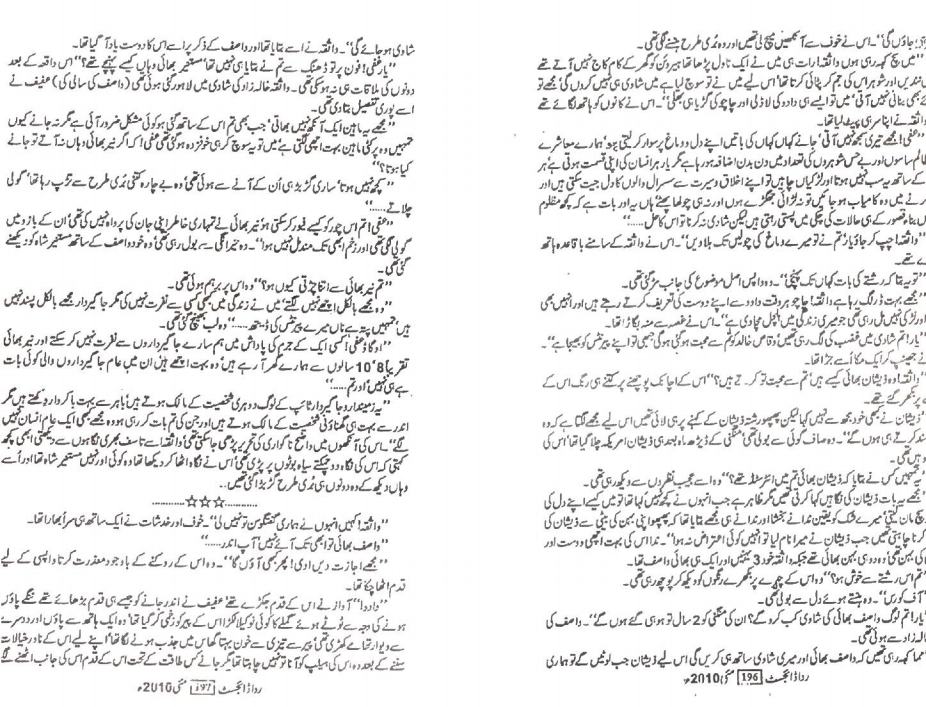 جاؤں گی‘‘۔ اس نے خوف سے آنکھیں میچ لی تھیں اور وہ بُری طرح ہنسنے لگی تھی۔
’’میں سچ کہہ رہی ہوں واثقہ! رات ہی میں نے ایک ناول پڑھا تھا ہیروئن کو گھر کے کام کاج نہیں آتے تھے
نندیں اور شوہر اس کی جم کر پٹائی کرتا تھا‘ اس لیے میں نے تو سوچ لیا ہے میں شادی ہی نہیں کروں گی‘ مجھے تو
بھی بنانی نہیں آتی‘ میں تو ایسے ہی دادو کی لاڈلی اور چاچو کی گڑیا ہی بھلی‘‘۔ اس نے کانوں کو ہاتھ لگائے تھے
واثقہ نے اپنا سر ہی پیٹ لیا تھا۔
’’عفی! مجھے تیری سمجھ نہیں آتی‘ جانے کہاں کہاں کی باتیں اپنے دل و دماغ پر سوار کر لیتی ہو‘ ہمارے معاشرے
ظالم ساسوں اور بے حس شوہروں کی تعداد میں دن بدن اضافہ ہو رہا ہے مگر یار ہر انسان کی اپنی قسمت ہوتی ہے‘ ہر
کے ساتھ یہ سب نہیں ہوتا اور لڑکیاں چاہیں تو اپنے اخلاق و سیرت سے سسرال والوں کا دل جیت سکتی ہیں اور
کرنے میں وہ کامیاب ہو جائیں تو نہ لڑائی جھگڑے ہوں اور نہ ہی چولھا پھٹے‘ ہاں یہ اور بات ہے کہ کچھ مظلوم
بنا قصور کے ہی حالات کی چکی میں پستی رہتی ہیں لیکن شادی نہ کرنا تو اس کا حل۔۔۔۔۔‘‘
’’واثقہ! چپ کر جاؤ یار‘ تم نے تو میرے دماغ کی چولیں تک ہلا دیں‘‘۔ اس نے واثقہ کے سامنے باقاعدہ ہاتھ
تھے۔
’’تو یہ بتا کہ رشتے کی بات کہاں تک پہنچی‘‘۔ وہ واپس اصل موضوع کی جانب مڑ گئی تھی۔
’’مجھے بہت ڈر لگ رہا ہے واثقہ! چاچو ہر وقت دادو سے اپنے دوست کی تعریف کرتے رہتے ہیں اور انہیں بھی
اور لڑکی نہیں مل رہی تھی جو میری زندگی میں ہلچل مچا دی ہے‘‘۔ اس نے غصہ سے منہ بگاڑا تھا۔
’’یار! تم شادی میں غضب کی لگ رہی تھیں‘ وقاص خالد کو تم سے محبت ہو گئی ہو گی جبھی تو اپنے پیرنٹس کو بھیجا ہے‘‘۔
نے جھینپ کر ایک مکا اُسے جڑا تھا۔
’’واثقہ! وہ ذیشان بھائی کیسے ہیں‘ تم سے محبت تو کرتے ہیں؟‘‘ اس کے اچانک پوچھنے پر کتنے ہی رنگ اس کے
پر بکھر گئے تھے۔
’’ذیشان نے کبھی خود مجھ سے نہیں کہا لیکن پھپھو رشتہ ذیشان کے کہنے پر ہی لائی تھیں اس لیے مجھے لگتا ہے کہ وہ
پسند کرتے ہی ہوں گے‘‘۔ وہ صاف گوئی سے بولی تھی‘ منگنی کے ڈیڑھ ماہ بعد ہی ذیشان امریکہ چلا گیا تھا‘ اُس کی
ہیں تھی۔
’’یہ تمہیں کس نے بتایا کہ ذیشان بھائی تم میں انٹرسٹڈ تھے؟‘‘ وہ اسے عجیب نظروں سے دیکھ رہی تھی۔
’’مجھے یہ بات ذیشان کی نگاہیں کہا کرتی تھیں مگر ظاہر ہے جب انہوں نے کچھ نہیں کہا تو میں کیسے اپنے دل کی
سچ مان لیتی‘ میرے شک کو یقین ندا نے بخشا اور ندا نے ہی مجھے بتایا تھا کہ پھپھو اپنی بہن کی بیٹی سے ذیشان کی
کرنا چاہتی تھیں جب ذیشان نے میرا نام لیا تو انہیں کوئی اعتراض نہ ہوا‘‘۔ ندا اس کی بہت اچھی دوست اور
کی بہن تھی وہ دو ہی بہن بھائی تھے جبکہ واثقہ خود 3 بہنیں اور ایک ہی بھائی واصف تھا۔
’’تم اس رشتے سے خوش ہو؟‘‘ وہ اس کے چہرے پر بکھرے رنگوں کو دیکھ کر پوچھ رہی تھی۔
’’آف کورس‘‘۔ وہ ہنستے ہوئے دل سے بولی تھی۔
’’یار! تم لوگ واصف بھائی کی شادی کب کرو گے؟ ان کی منگنی کو 2 سال تو ہو ہی گئے ہوں گے‘‘۔ واصف کی
خالہ زاد سے ہوئی تھی۔
’’مما کہہ رہی تھیں کہ واصف بھائی اور میری شادی ساتھ ہی کریں گی اس لیے ذیشان جب لوٹیں گے تو ہماری
رِدا ڈائجسٹ 196 مئی 2010ء
شادی ہو جائے گی‘‘۔ واثقہ نے اسے بتایا تھا اور واصف کے ذکر پر اسے اس کا دوست یاد آ گیا تھا۔
’’یار عفی! فون پر تو ڈھنگ سے تم نے بتایا ہی نہیں تھا‘ مستغیر بھائی وہاں کیسے پہنچے تھے؟‘‘ اس واقعہ کے بعد
دونوں کی ملاقات ہی نہ ہو سکی تھی۔ واثقہ خالہ زاد کی شادی میں لاہور گئی ہوئی تھی (واصف کی سالی کی) عفیف نے
اسے پوری تفصیل بتا دی تھی۔
’’مجھے یہ ماہین ایک آنکھ نہیں بھاتی‘ جب بھی تم اس کے ساتھ گئی ہو کوئی مشکل ضرور آئی ہے مگر نہ جانے کیوں
تمہیں وہ پرکٹی ماہین بہت اچھی لگتی ہے‘ میں تو یہ سوچ کر ہی خوفزدہ ہو گئی تھی عفی! کہ اگر نیر بھائی وہاں نہ آتے تو جانے
کیا ہوتا؟‘‘
’’کچھ نہیں ہوتا‘ ساری گڑبڑ ہی اُن کے آنے سے ہوئی تھی‘ وہ بے چارہ کتنی بُری طرح سے تڑپ رہا تھا‘ گولی
چلاتے۔۔۔۔۔‘‘
’’عفی! تم اس چور کو کیسے فیور کر سکتی ہو‘ نیر بھائی نے تمہاری خاطر اپنی جان کی پرواہ نہیں کی تھی‘ اُن کے بازو میں
گولی لگی تھی اور زخم ابھی تک مندمل نہیں ہوا‘‘۔ وہ حیرانگی سے بول رہی تھی‘ وہ خود واصف کے ساتھ مستغیر شاہ کو دیکھنے
گئی تھی۔
’’تم نیر بھائی سے اتنا چڑتی کیوں ہو؟‘‘ وہ اس پر برہم ہوئی تھی۔
’’وہ مجھے بالکل اچھے نہیں لگتے‘ میں نے زندگی میں کبھی کسی سے نفرت نہیں کی مگر جاگیردار مجھے بالکل پسند نہیں
ہیں‘ تمہیں پتہ ہے ناں میرے پیرنٹس کی ڈیتھ۔۔۔۔۔‘‘ وہ لب بھینچ گئی تھی۔
’’او گاڈ عفی! کسی ایک کے جرم کی پاداش میں ہم سارے جاگیرداروں سے نفرت نہیں کر سکتے اور نیر بھائی
تقریباً 8‘10 سالوں سے ہمارے گھر آ رہے ہیں‘ وہ بہت اچھے ہیں‘ ان میں عام جاگیرداروں والی کوئی بات
ہے ہی نہیں‘ اور تم۔۔۔۔۔‘‘
’’یہ زمیندار و جاگیردار ٹائپ کے لوگ دوہری شخصیت کے مالک ہوتے ہیں‘ باہر سے بہت باکردار دِکھتے ہیں مگر
اندر سے بہت ہی گھناؤنی شخصیت کے مالک ہوتے ہیں اور جن کی تم بات کر رہی ہو وہ مجھے بھی ایک عام انسان نہیں
لگے‘‘۔ اس کی آنکھوں میں واضح ناگواری کی تحریر پڑھی جا سکتی تھی‘ واثقہ اُسے تاسف بھری نگاہوں سے دیکھتی ابھی کچھ
کہتی کہ اس کی نگاہ دو چمکتے سیاہ بوٹوں پر پڑی تھی‘ اس نے نگاہ اٹھا کر دیکھا تھا وہ کوئی اور نہیں مستغیر شاہ تھا اور اُسے
وہاں دیکھ کے وہ دونوں ہی بُری طرح گڑبڑا گئی تھیں۔
............☆☆☆............
’’واثقہ! کہیں انہوں نے ہماری گفتگو سن تو نہیں لی‘‘۔ خوف اور خدشات نے ایک ساتھ ہی سر اُبھارا تھا۔
’’واصف بھائی تو ابھی تک آئے نہیں‘ آپ اندر۔۔۔۔۔‘‘
’’مجھے اجازت دیں ادی! پھر بھی آؤں گا‘‘۔ وہ اس کے روکنے کے باوجود معذرت کرتا واپسی کے لیے
قدم اٹھا چکا تھا۔
’’دادو!‘‘ آواز نے اس کے قدم جکڑے تھے‘ عفیف نے اندر جانے کو جیسے ہی قدم بڑھائے تھے ننگے پاؤں
ہونے کی وجہ سے ٹوٹے ہوئے گملے کا کوئی نوکیلا ٹکڑا اس کے پیر کو زخمی کر گیا تھا‘ وہ ایک ہاتھ سے پاؤں اور دوسرے
سے دیوار تھامے کھڑی تھی‘ پیر سے تیزی سے خون بہتا گھاس میں جذب ہونے لگا تھا‘ اپنے لیے اس کے نادر خیالات
سننے کے بعد وہ اس کی ہیلپ کو آنا تو نہیں چاہتا تھا مگر جانے کس طاقت کے تحت اس کے قدم اس کی جانب اٹھنے لگے
رِدا ڈائجسٹ 197 مئی 2010ء